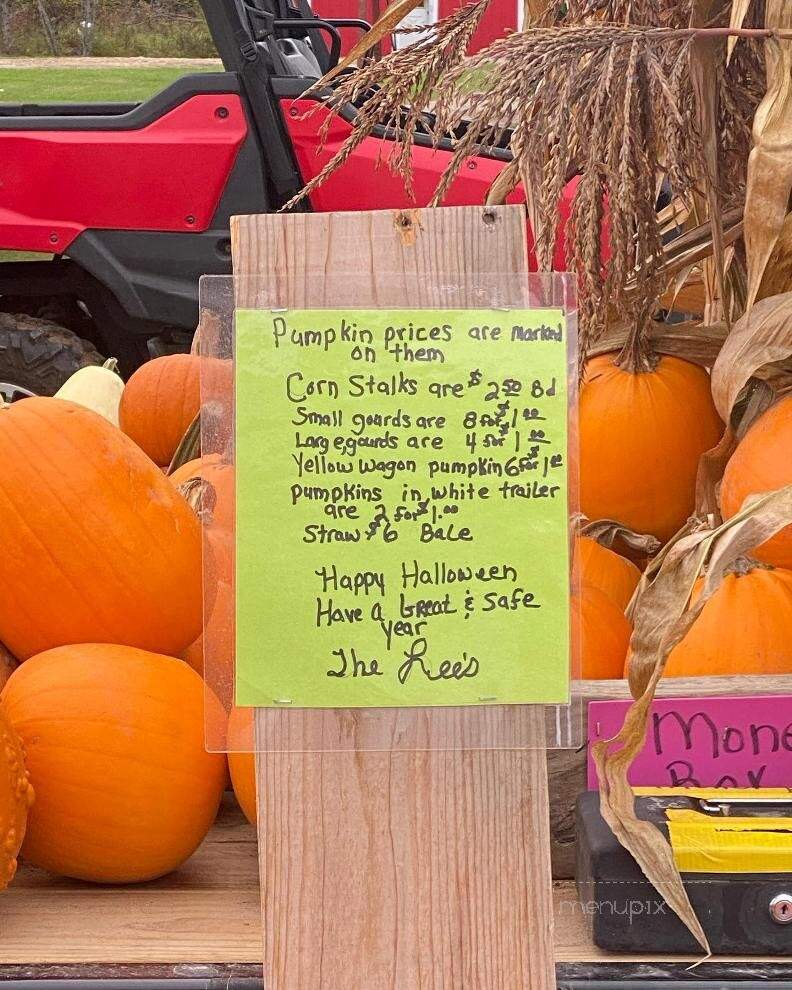 Pumpkin prices are marked
on them
Corn Stalks are $2.50 Bd
Small gourds are 8 for $1.00
Large gourds are 4 for $1.00
Yellow Wagon pumpkin 6 for $1.00
pumpkins in white trailer
are 2 for $1.00
Straw $6 Bale
Happy Halloween
Have a Great & Safe
year
The Lee's
Mone
Box
menupix